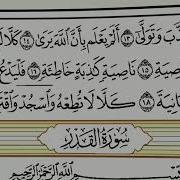 ذَّبَ وَتَوَلَّىٰٓ ١٣ أَلَمْ يَعْلَم بِأَنَّ ٱللَّهَ يَرَىٰ ١٤ كَلَّا
صِيَةِ ١٥ نَاصِيَةٍ كَٰذِبَةٍ خَاطِئَةٍ ١٦ فَلْيَدْعُ
انِيَةَ ١٨ كَلَّا لَا تُطِعْهُ وَٱسْجُدْ وَٱقْتَ
سُورَةُ ٱلْقَدْرِ
بِسْمِ ٱللَّهِ ٱلرَّحْمَٰنِ ٱلرَّحِيمِ